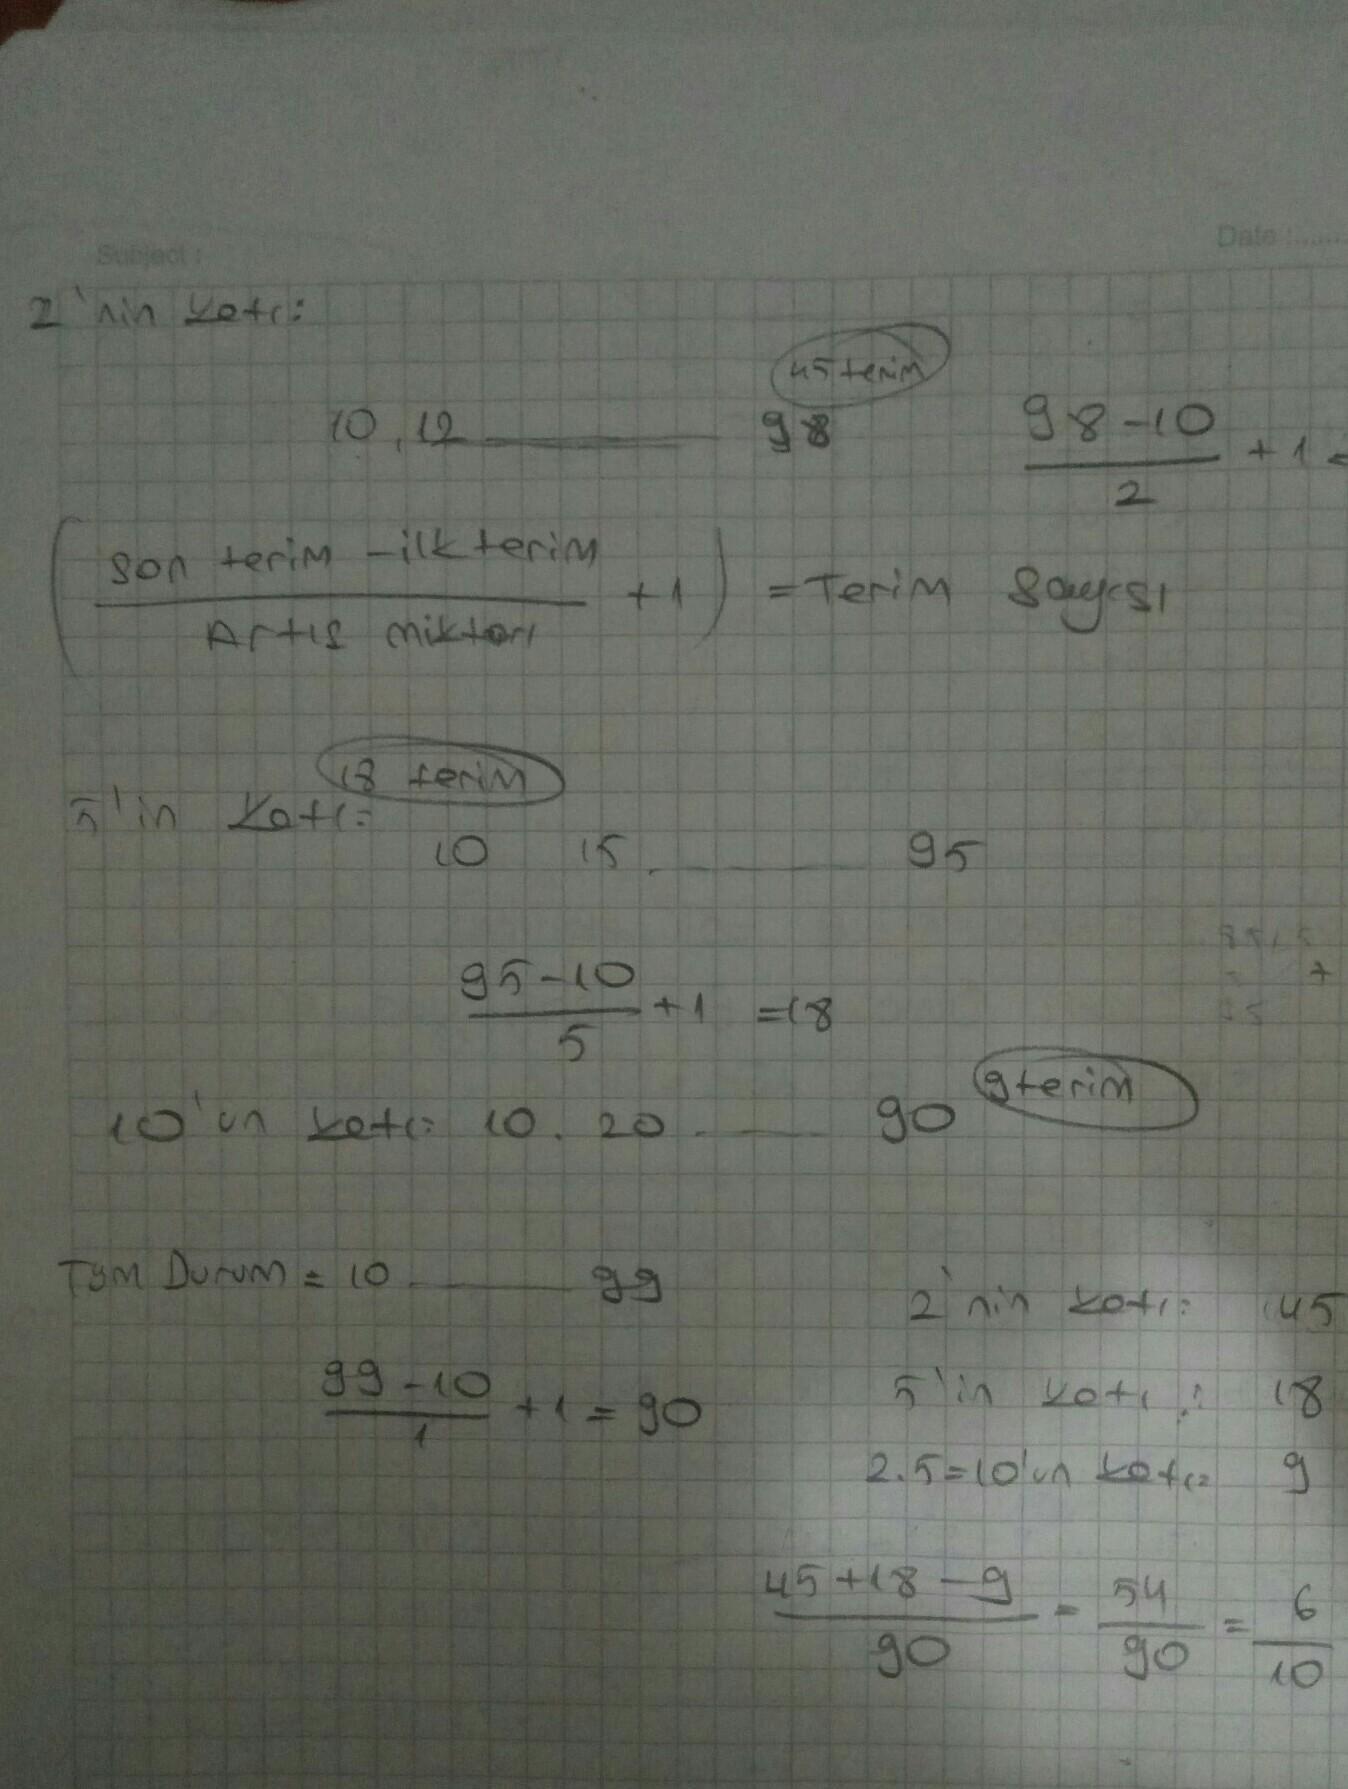 Subject :
Date :......
2'nin katı:
45 terim
10, 12 ——— 98
98-10 / 2 + 1 =
( son terim - ilk terim / Artış miktarı + 1 ) = Terim Sayısı
18 terim
5'in katı:
10 15. ——— 95
95-10 / 5 + 1 = 18
9 terim
10'un katı: 10. 20. ——— 90
Tüm Durum = 10 ——— 99
99-10 / 1 + 1 = 90
2'nin katı: 45
5'in katı: 18
2.5=10'un katı: 9
45+18-9 / 90 = 54 / 90 = 6 / 10